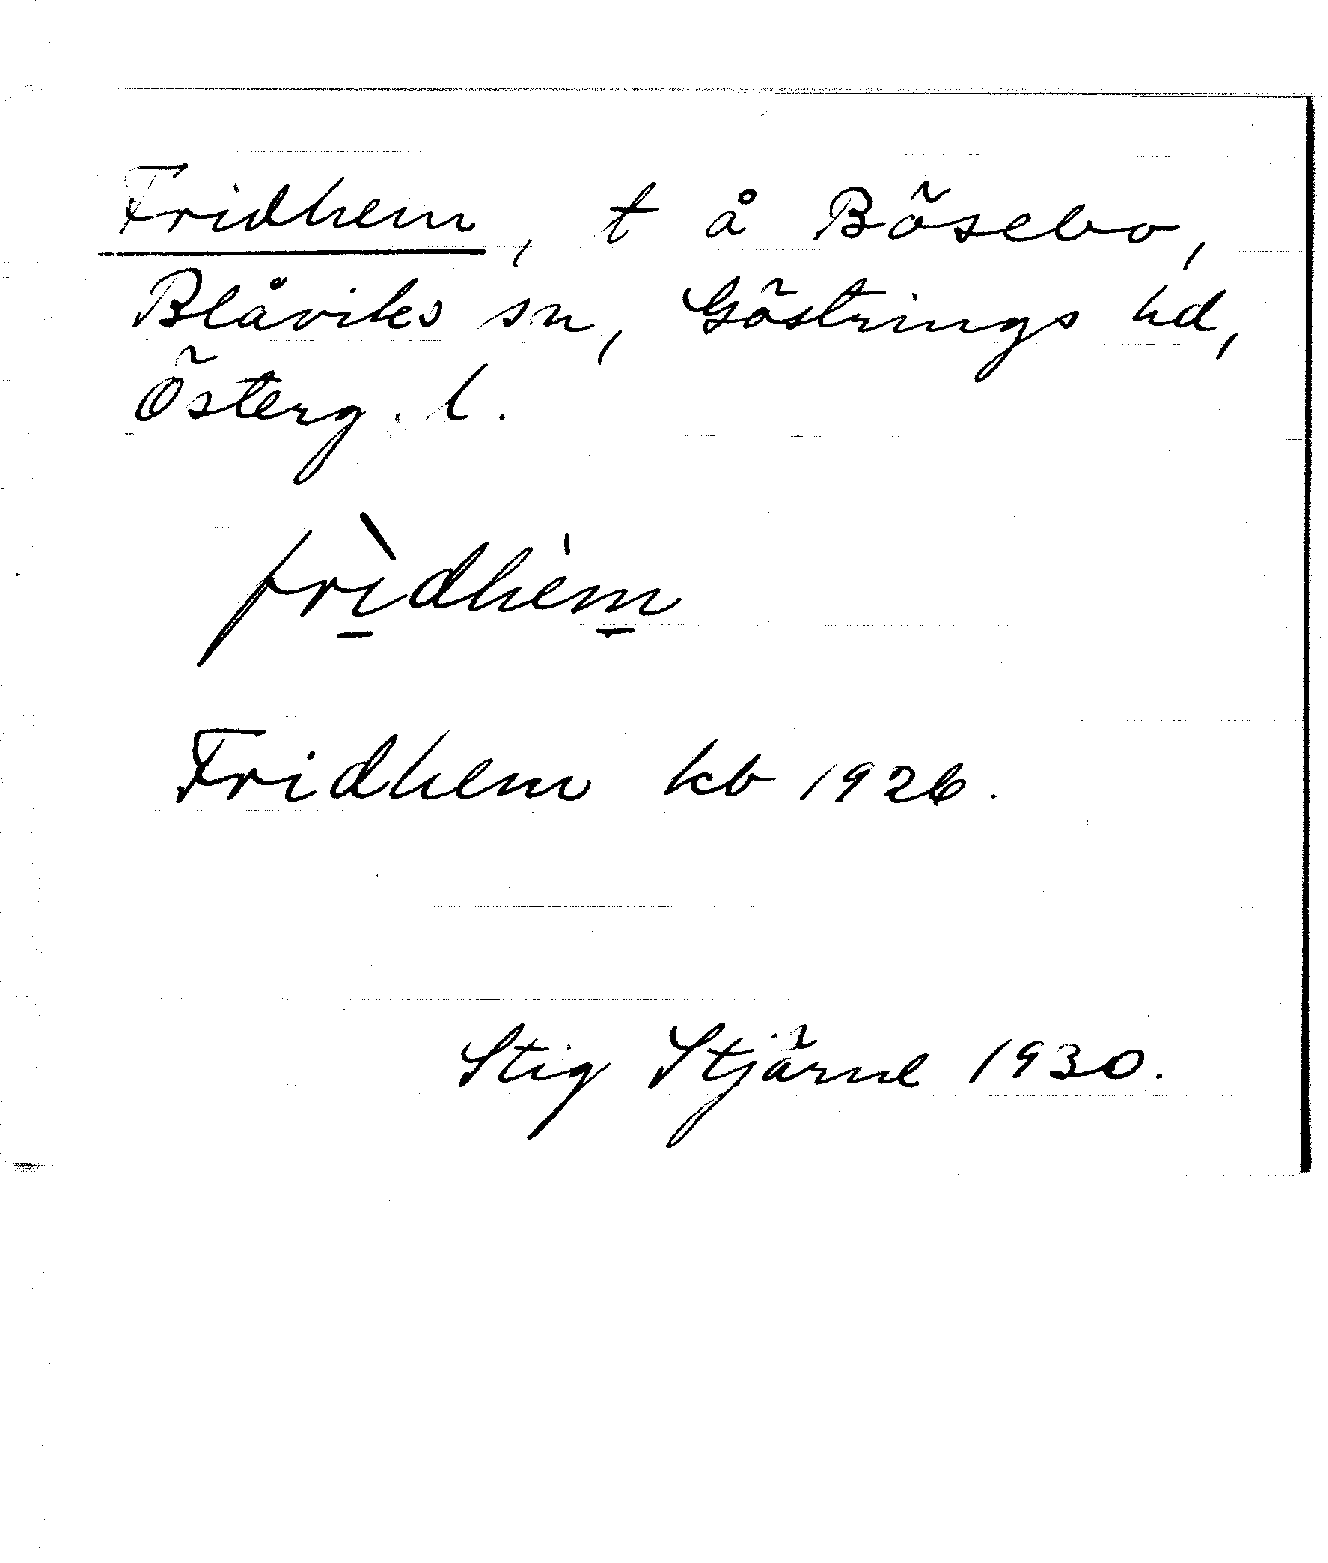 Fridhem, t å Bösebo,
Blåviks sn, Göstrings hd,
Österg. l.
frìdhèm
Fridhem kb 1926.
Stig Stjärne 1930.